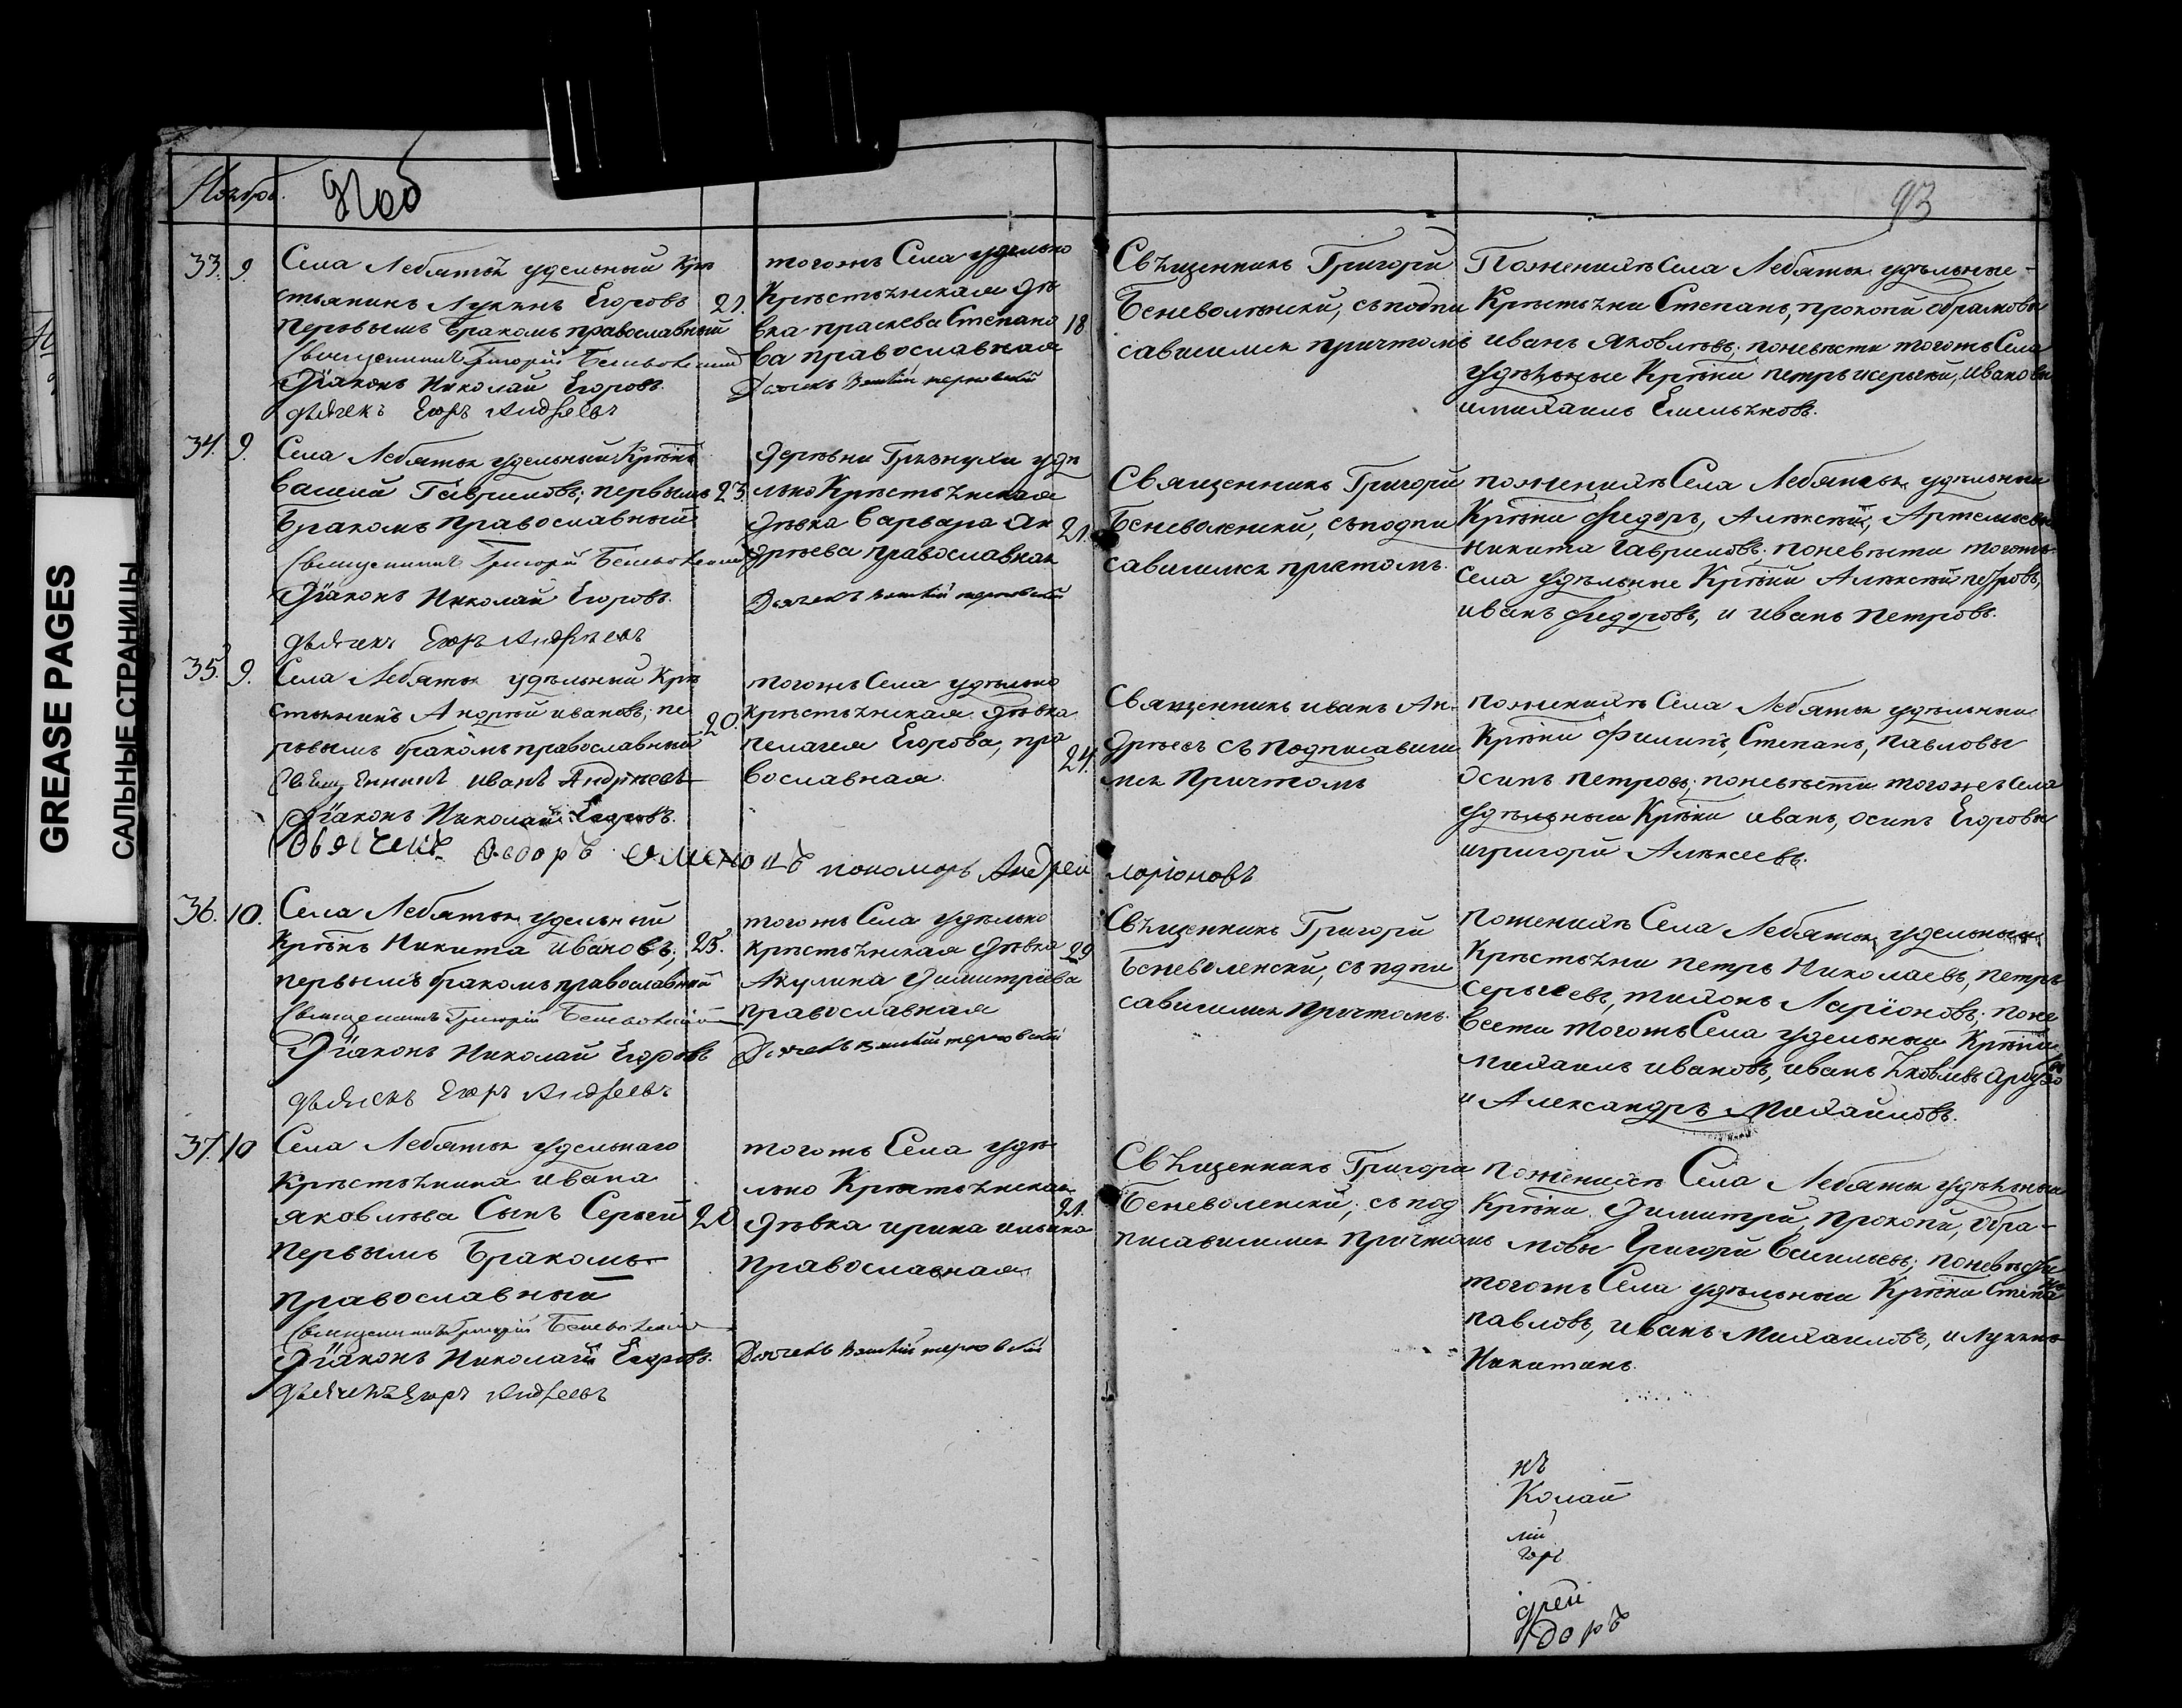 GREASE PAGES
САЛЬНЫЕ СТРАНИЦЫ
Ноябрь.
93
33. 9.
Села Лебяжья удельный Кре
стьянинъ Лукьянъ Егоровъ
первымъ бракомъ православный
Священникъ Григорій Беневоленскій
Діаконъ Николай Егоровъ.
дьячекъ Егоръ Андреевъ
21.
тогожъ Села удельно
Крестьянская де
вка праскева Степано
ва православная
18
Священникъ Григори
Беневоленски, съ подпи
савшимся причтомъ
По женихе Села Лебяжья удельные
Крестьяни Степанъ, прокопи Абрамовы
иванъ яковлевъ; по невести тогожъ Села
удельные Крестьяни петръ и сергей, ивановы
и михаилъ Емельяновъ.
34. 9.
Села Лебяжья удельный Крѣнъ
Василй Гавриловъ; первымъ
бракомъ православный
Священникъ Григорій Беневоленскій
Діаконъ Николай Егоровъ.
дьячекъ Егоръ Андреевъ
23.
деревни Грязнухи уде
льно Крестьянская
девка Варвара Ан
дреева православная
21.
Священникъ Григори
Беневоленски, съ подпи
савшимся причтомъ.
по женихе Села Лебяжья удельныи
Крѣни Федоръ, Алексей, Артемьевы
Никита Гавриловъ. по невести тогожъ
Села удельные Крѣни Алексей петровъ,
иванъ Федоровъ, и иванъ петровъ.
35. 9.
Села Лебяжья удельный Кре
стьянинъ Андрей ивановъ; пе
рвымъ бракомъ православный
Священникъ Иванъ Андреевъ
Діаконъ Николай Егоровъ.
дьячекъ Федоръ Семеновъ пономарь Андрей Ларіоновъ
20.
тогожъ Села удельно
крестьянская девка
пелагея Егорова, пра
вославная.
24.
Священникъ иванъ Ан
дреевъ съ подписавши
мся причтомъ
по женихе Села Лебяжья удельныи
Крѣни Филипъ, Степанъ, павловы
осипъ петровъ; по невести тогоже Села
удельныи Крѣни иванъ, осипъ Егоровы
и григори Алексеевъ.
36. 10.
Села Лебяжья удельный
Крѣнъ Никита ивановъ;
первымъ бракомъ православный
Священникъ Григорій Беневоленскій
Діаконъ Николай Егоровъ
дьячекъ Егоръ Андреевъ
25.
тогожъ Села удельно
крестьянская девка
Акулина Димитріева
православная
29
Священникъ Григори
Беневоленски, съ подпи
савшимся причтомъ.
по женихе Села Лебяжья удельныи
Крестьяни петръ Николаевъ, петръ
Сергеевъ, тихонъ Ларіоновъ; по не
вести тогожъ Села удельныи Крѣни
михаилъ ивановъ, иванъ Яковлевъ
и Александръ Михаиловъ.
37. 10
Села Лебяжья удельнаго
крестьянина ивана
яковлева Сынъ Сергей
первымъ бракомъ
православный
Священникъ Григорій Беневоленскій
Діаконъ Николай Егоровъ.
дьячекъ Егоръ Андреевъ
20
тогожъ Села уде
льно Крестьянская
девка ирина ильина
православная
21.
Священникъ Григори
Беневоленски; съ под
писавшимся причтомъ
по женихе Села Лебяжья удельныи
Крѣни Димитри, прокопи, Абра-
мовы Григори Васильевъ; по невести
тогожъ Села удельныи Крѣни Степанъ
павловъ, иванъ Михаиловъ, и Лукьянъ
Никитинъ.
нъ
Колай
лій
горъ
дрей
доръ